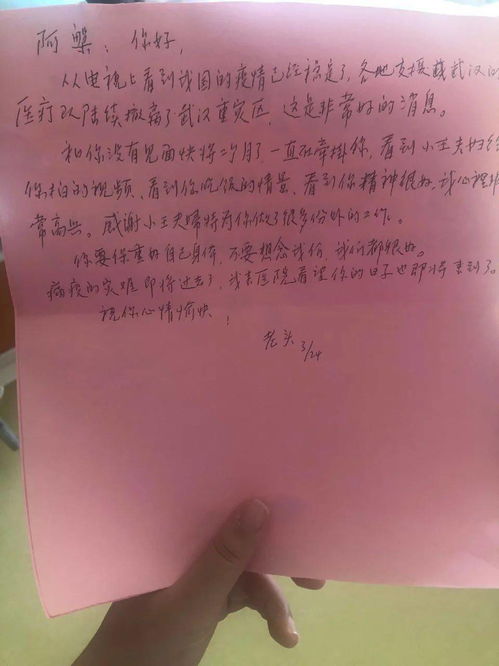 阿槃：你好，
从电视上看到我国的疫情已经稳定了，各地支援武汉的
医疗队陆续撤离了武汉重灾区，这是非常好的消息。
和你没有见面快将二个月了，一直在牵掛你，看到小王大夫给
你拍的视频，看到你吃饭的情景，看到你精神很好，我心里非
常高兴。感谢小王大夫嘴特为你做了很多份外的工作。
你要保重好自己身体，不要想念我们，我们都很好。
病疫的灾难即将过去了，我去医院看望你的日子也即将来到了。
祝你心情愉快！
老头 3/24